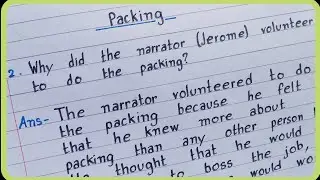 Packing
2. Why did the narrator (Jerome) volunteer
to do the packing?
Ans- The narrator volunteered to do
the packing because he felt
that he knew more about
packing than any other person
the thought that he would
to boss the job,
would